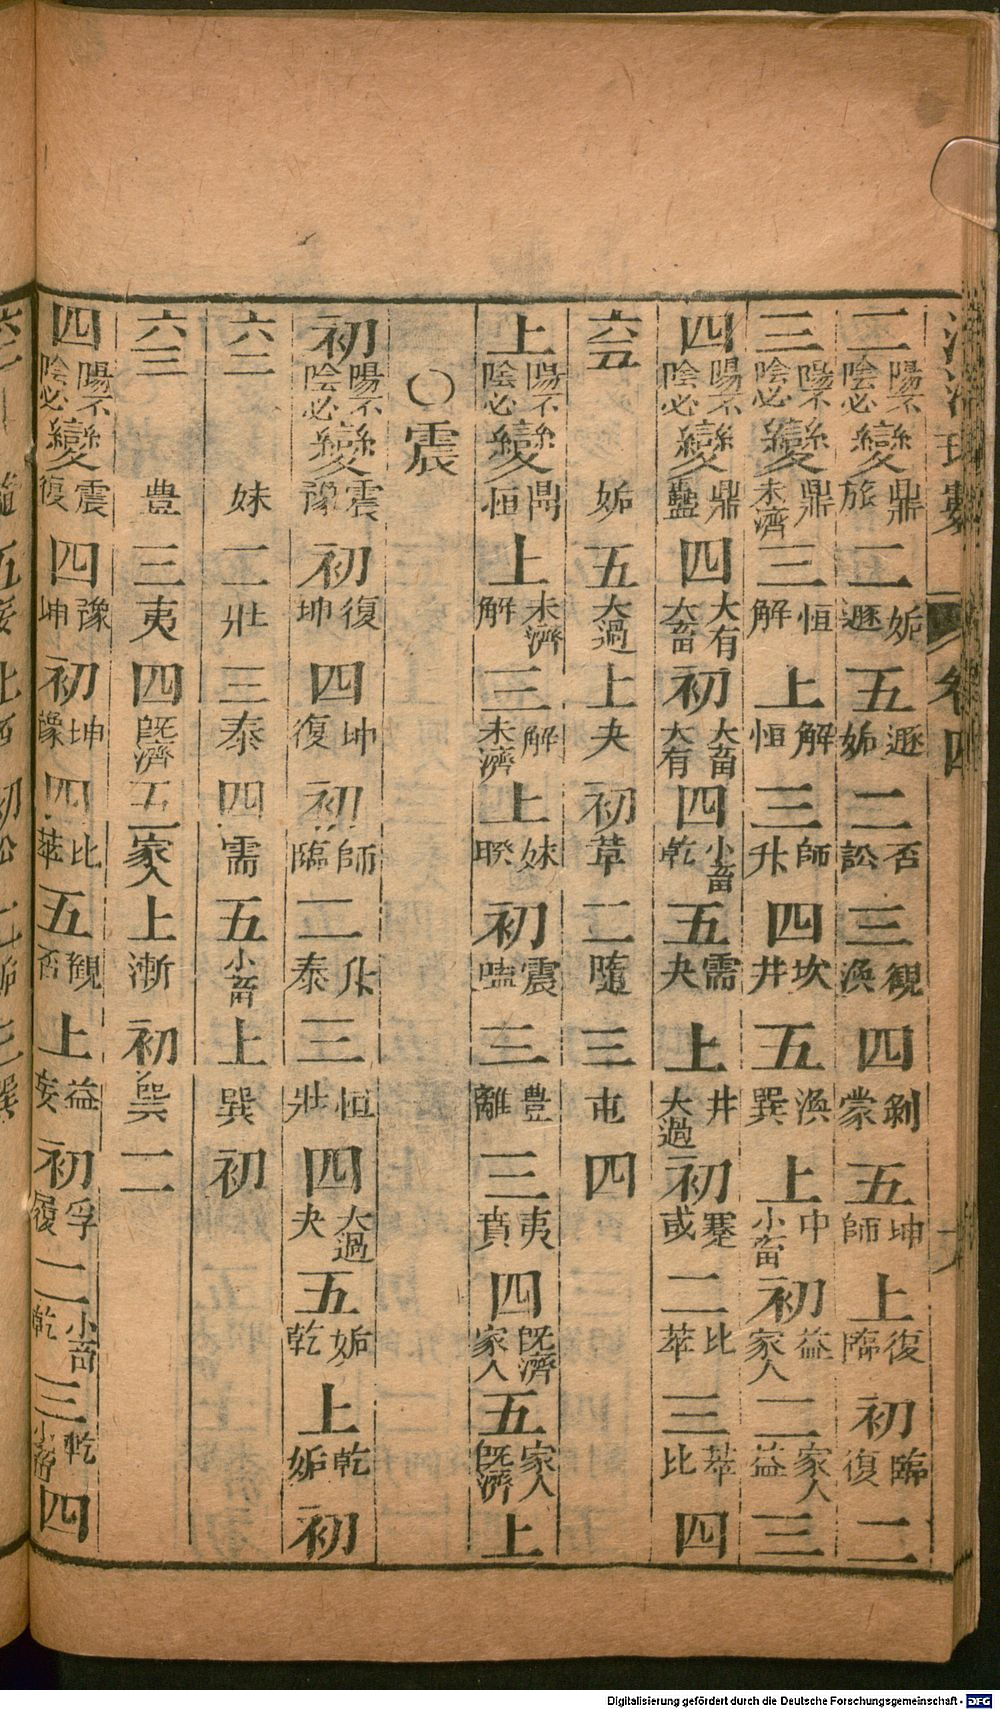 二 陽不陰必 變 鼎旅 二 姤遯 五 遯姤 二 否訟 三 観渙 四 剝蒙 五 坤師 上 復臨 初 臨復 二
三 陽不陰必 變 鼎未濟 三 恒解 上 解恒 三 師升 四 坎井 五 渙巽 上 中小畜 初 益家人 二 家人益 三
四 陽不陰必 變 鼎蠱 四 大有大畜 初 大畜大有 四 小畜乾 五 需夬 上 井大過 初 蹇咸 二 比萃 三 萃比 四
六五 姤 五 大過 上 夬 初 革 二 隨 三 屯 四
上 陽不陰必 變 鼎恒 上 未濟解 三 解未濟 上 妹睽 初 震嗑 三 豊離 三 夷賁 四 既濟家人 五 家人既濟 上
○震
初 陽不陰必 變 震豫 初 復坤 四 坤復 初 師臨 二 升泰 三 恒壯 四 大過夬 五 姤乾 上 乾姤 初
六二 妹 二 壯 三 泰 四 需 五 小畜 上 巽 初
六三 豊 三 夷 四 既濟 五 家人 上 漸 初 巽 二
四 陽不陰必 變 震復 四 豫坤 初 坤豫 四 比萃 五 観否 上 益妄 初 孚履 二 小畜乾 三 乾小畜 四
卷四
Digitalisierung gefördert durch die Deutsche Forschungsgemeinschaft - DFG